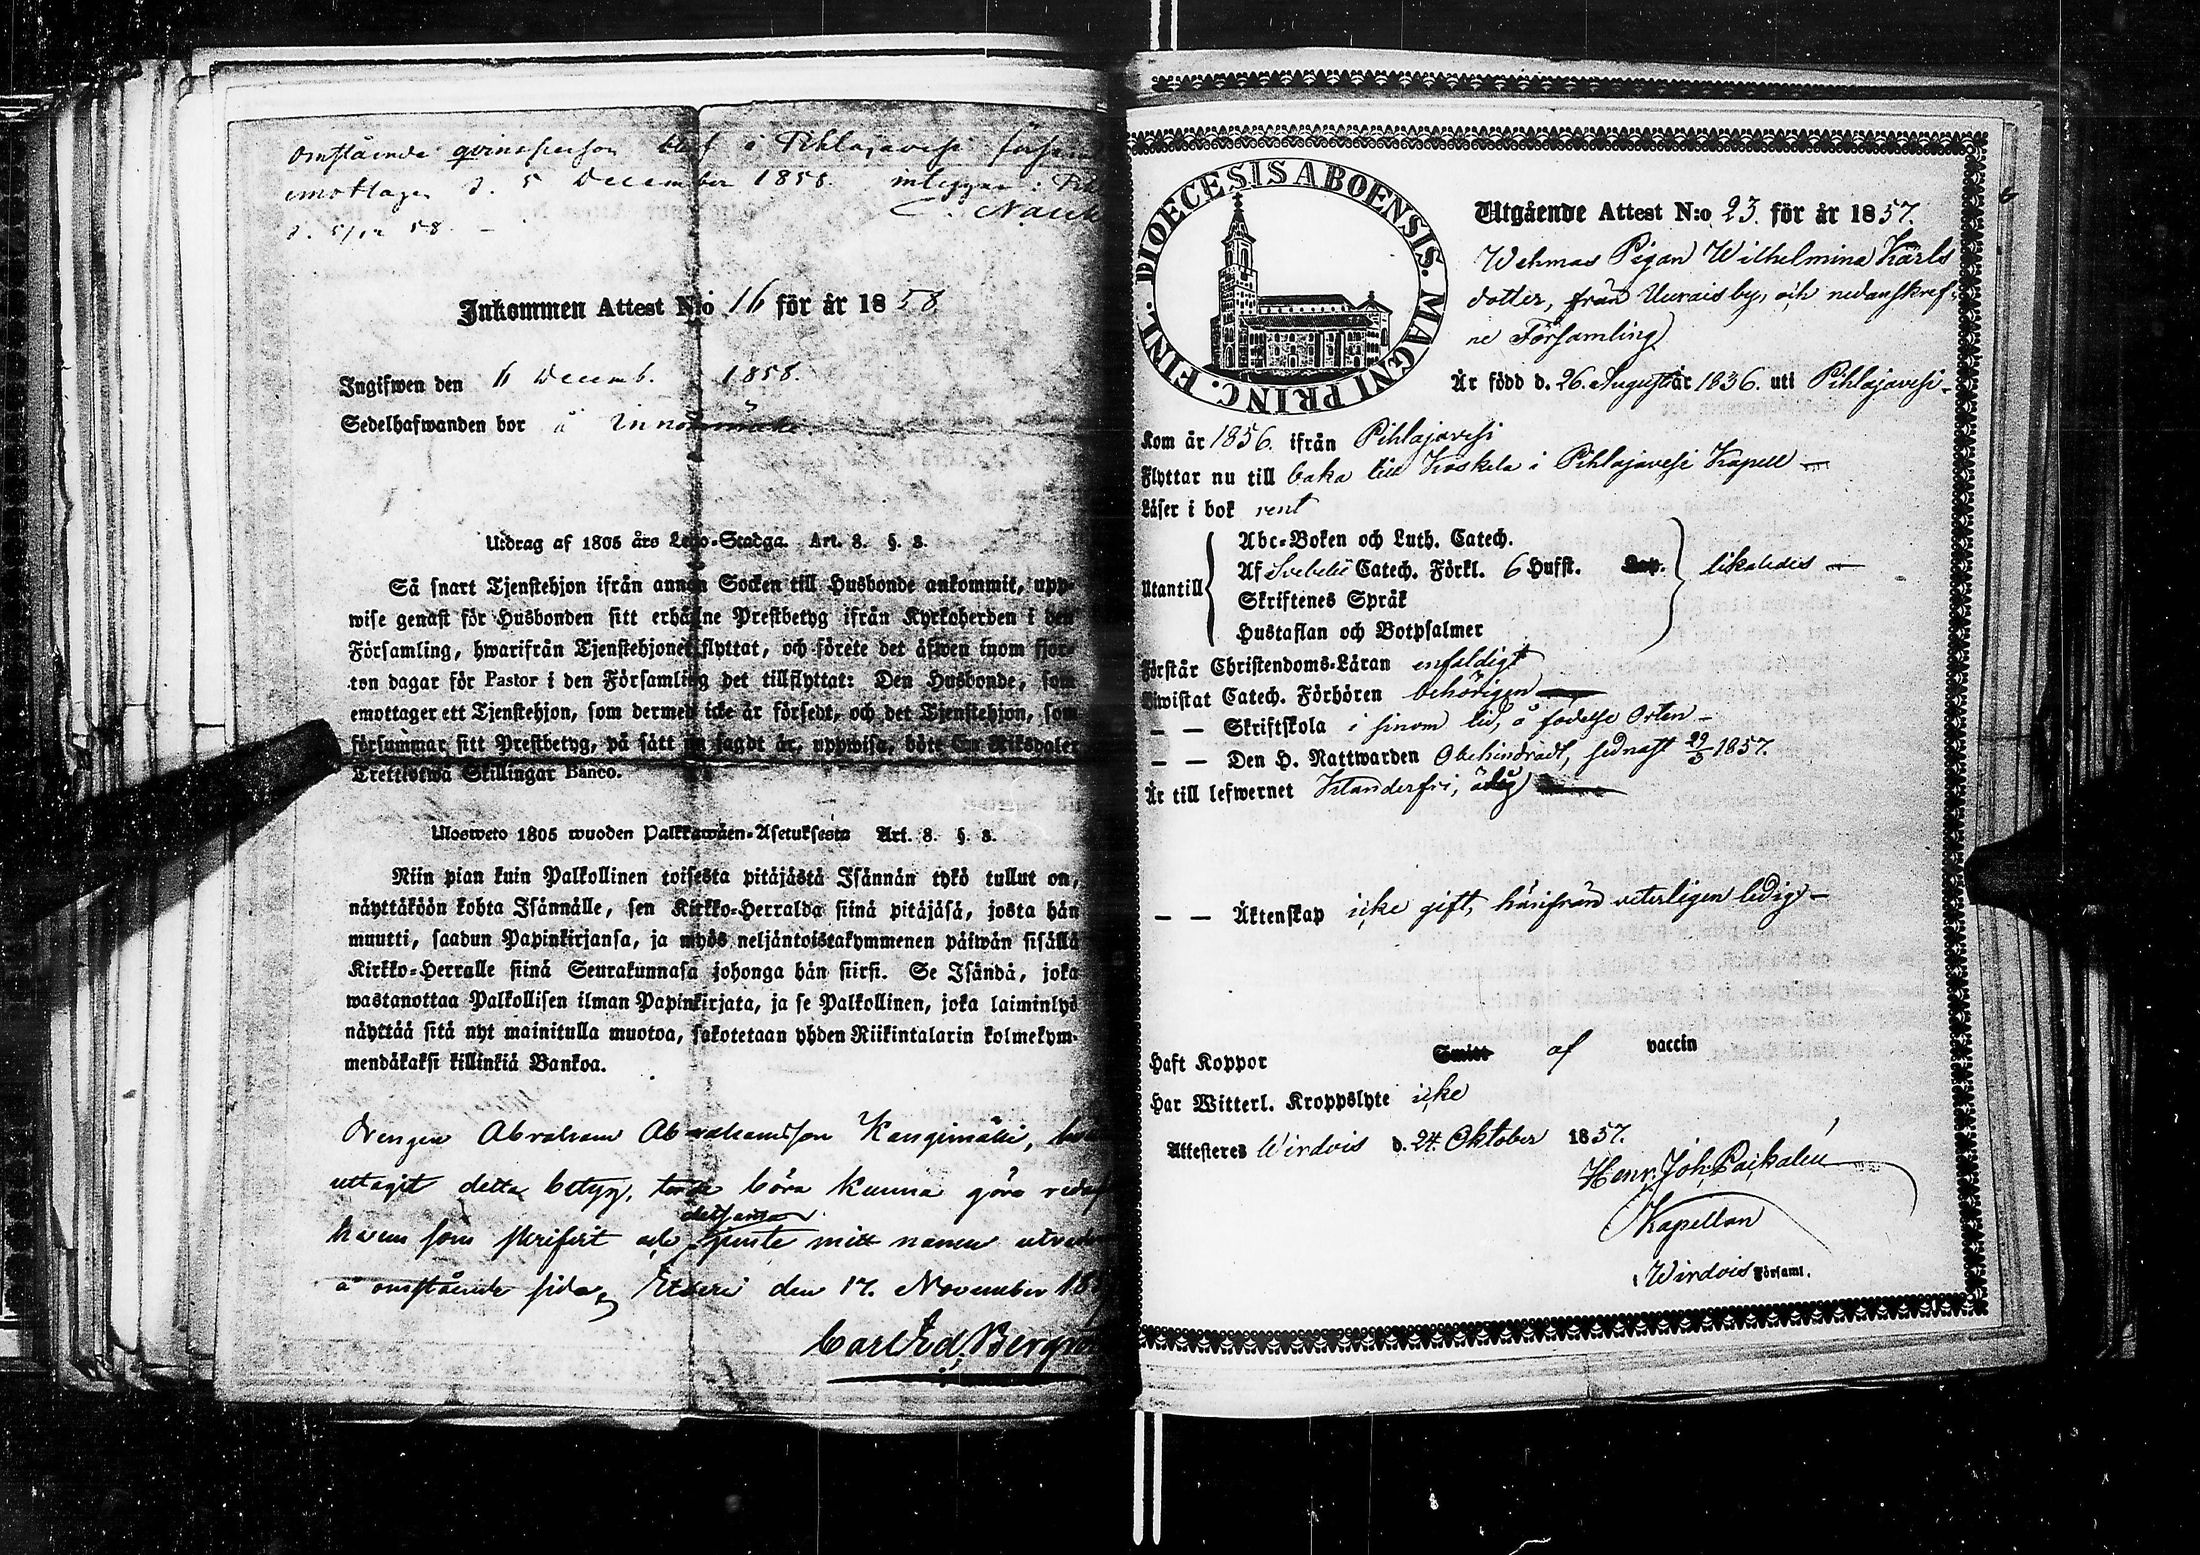 Omstående qvinsperson blef i Pihlajavesi försam
emottagen d. 5 December 1858. intygar: Pihl
d. 5/12 58.
Inkommen Attest N:o 16 för år 1858
Ingifwen den 6 Decemb. 1858.
Sedelhafwanden bor å
Utdrag af 1805 års Lego-Stadga. Art. 8. §. 8.
Så snart Tjenstehjon ifrån annan Socken till Husbonde ankommit, upp-
wise genast för Husbonden sitt erhållne Prestbetyg ifrån Kyrkoherden i den
Församling, hwarifrån Tjenstehjonet flyttat, och förete det äfwen inom fjor-
ton dagar för Pastor i den Församling det tillflyttat: Den Husbonde, som
emottager ett Tjenstehjon, som dermed icke är försedt, och det Tjenstehjon, som
försummar sitt Prestbetyg, på sätt nu sagdt är, uppwisa, böte En Riksdaler
Trettiotwå Skillingar Banco.
Ulosweto 1805 wuoden Palkkawäen-Asetuksesta Art. 8. §. 8.
Niin pian kuin Palkollinen toisesta pitäjästä Isännän tykö tullut on,
näyttäköön kohta Isännälle, sen Kirkko-Herralda siinä pitäjäsä, josta hän
muutti, saadun Papinkirjansa, ja myös neljäntoistakymmenen päiwän sisällä
Kirkko-Herralle siinä Seurakunnasa johonga hän siirsi. Se Isändä, joka
wastanottaa Palkollisen ilman Papinkirjata, ja se Palkollinen, joka laiminlyö
näyttää sitä nyt mainitulla muotoa, sakotetaan yhden Riikintalarin kolmekym-
mendäkaksi killinkiä Bankoa.
Drengen Abraham Abrahamsson Kangimäki, som
uttagit detta betyg, torde böra kunna göra reda
hvem som skrifvit och
dersamma
mitt namn
å omstående sida, Etseri den 17. November 18
Carl Ed. Bergro
FINL. DIOECESIS ABOENSIS. MAGNI PRINC.
6
Utgående Attest N:o 23. för år 1857.
Wehmas Pigan Wilhelmina Karls
dotter, från Uuraisby, och nedanskref-
ne Församling
Är född d. 26. August år 1836. uti Pihlajavesi.
Kom år 1856. ifrån Pihlajavesi
Flyttar nu till baka till Koskela i Pihlajavesi Kapell
Läser i bok rent
Utantill
Abc-Boken och Luth. Catech.
Af Svebelii Catech. Förkl. 6 Hufst. Cap. likaledes
Skriftenes Språk
Hustaflan och Botpsalmer
Förstår Christendoms-Läran enfaldigt
Biwistat Catech. Förhören behörigen
— — Skriftskola i sinom tid, å födelse Orten
— — Den H. Nattwarden Obehindradt, sednast 29/3 1857.
Är till lefwernet Klanderfri, ärlig
— — Äktenskap icke gift, härifrån veterligen ledig
Haft Koppor Smitt af vaccin
Har Witterl. Kroppslyte icke
Attesteres Wirdois d. 24. Oktober 1857.
Henr. Joh. Paikalén
Kapellan
i Wirdois Församl.